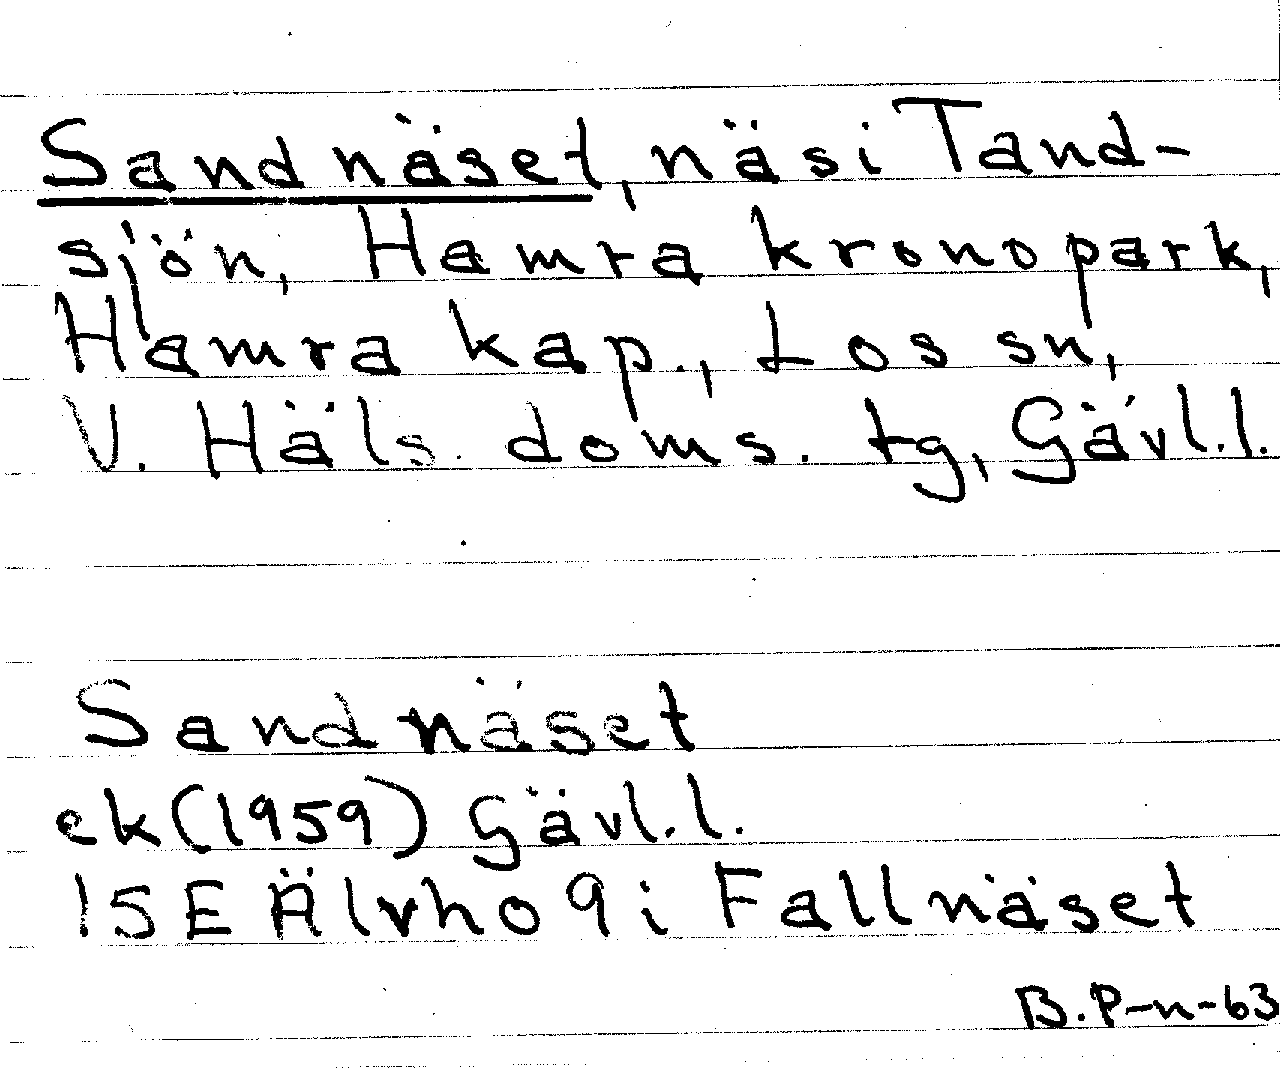 Sandnäset, näs i Tand-
sjön, Hamra kronopark,
Hamra kap., Los sn,
V. Häls. doms. tg, Gävl.l.
Sandnäset
ek (1959) Gävl.l.
15E Älvho 9i Fallnäset
B.P-n-63